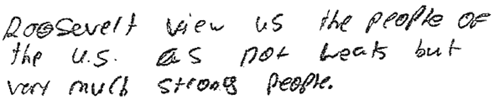 Roosevelt view us the people of
the U.S. as not weaks but
very much strong people.